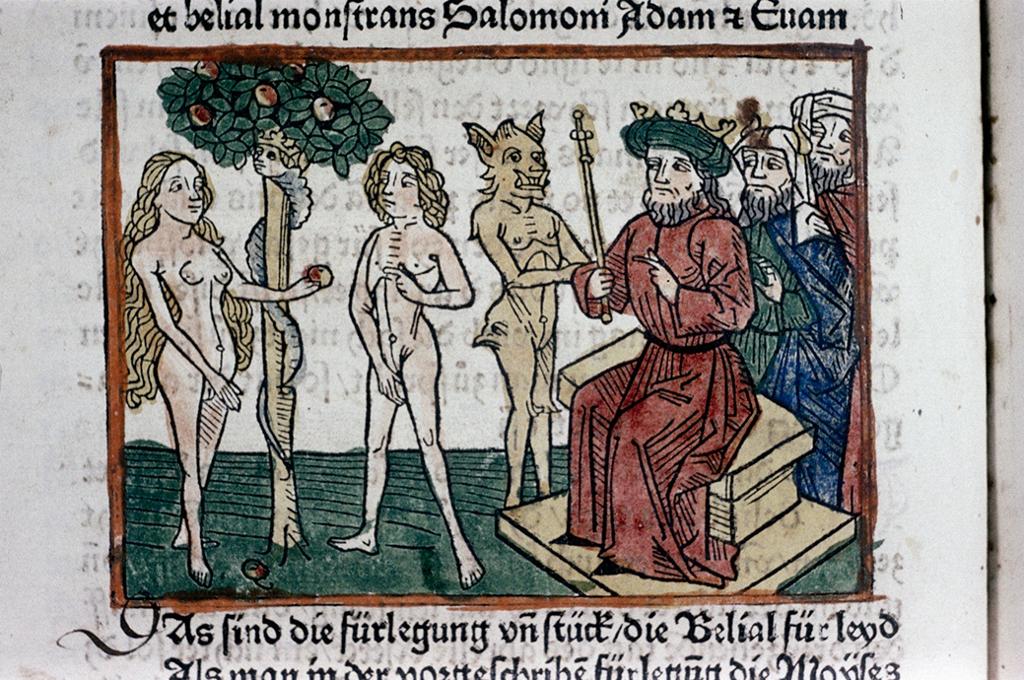 et belial monſtrans Salomoni Adam ⁊ Euam
DAs ſind die fürlegung vñ ſtück/die Belial für leyd
Als man in der vorgeſchribẽ fürlegũg die Moyſes